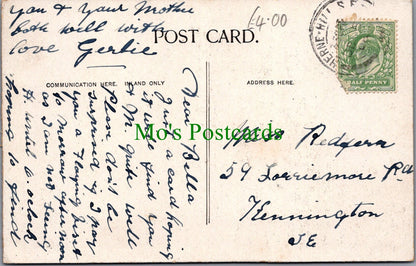 you & your Mother
both well with
love Gertie
£4.00
POST CARD.
HERNE-HILL S.E.
HALF PENNY
COMMUNICATION HERE. INLAND ONLY
ADDRESS HERE.
Dear Bella
Just a card hoping
it will find you
& M. quite well
Please don't be
surprised if I pay
you a flying visit
to Morrow afternoon
as I am not seeing
H. until 6 oclock
hoping to find
Mo's Postcards
Miss Redfern
59 Lorriemore Rd
Kennington
SE